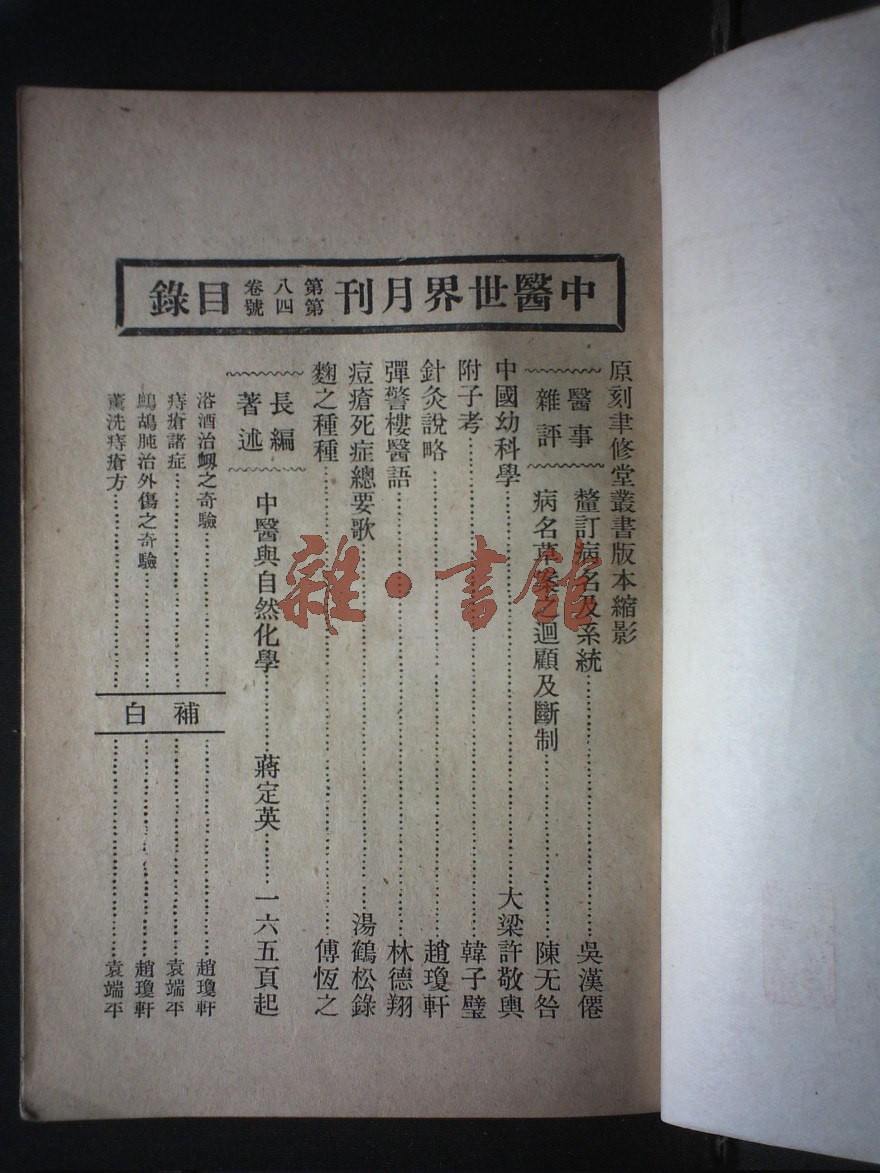 中醫世界月刊 第八卷 第四號 目錄
原刻聿修堂叢書版本縮影
醫事雜評
釐訂病名及系統……吳漢僊
病名草案之迴顧及斷制……陳无咎
中國幼科學……大梁許敬輿
附子考……韓子璧
針灸說略……趙瓊軒
彈警樓醫語……林德翔
痘瘡死症總要歌……湯鶴松錄
麴之種種……傅恆之
長編著述
中醫與自然化學……蔣定英……一六五頁起
補白
浴酒治衂之奇驗……趙瓊軒
痔瘡諸症……袁端平
鷓鴣肫治外傷之奇驗……趙瓊軒
薰洗痔瘡方……袁端平
雜·書館